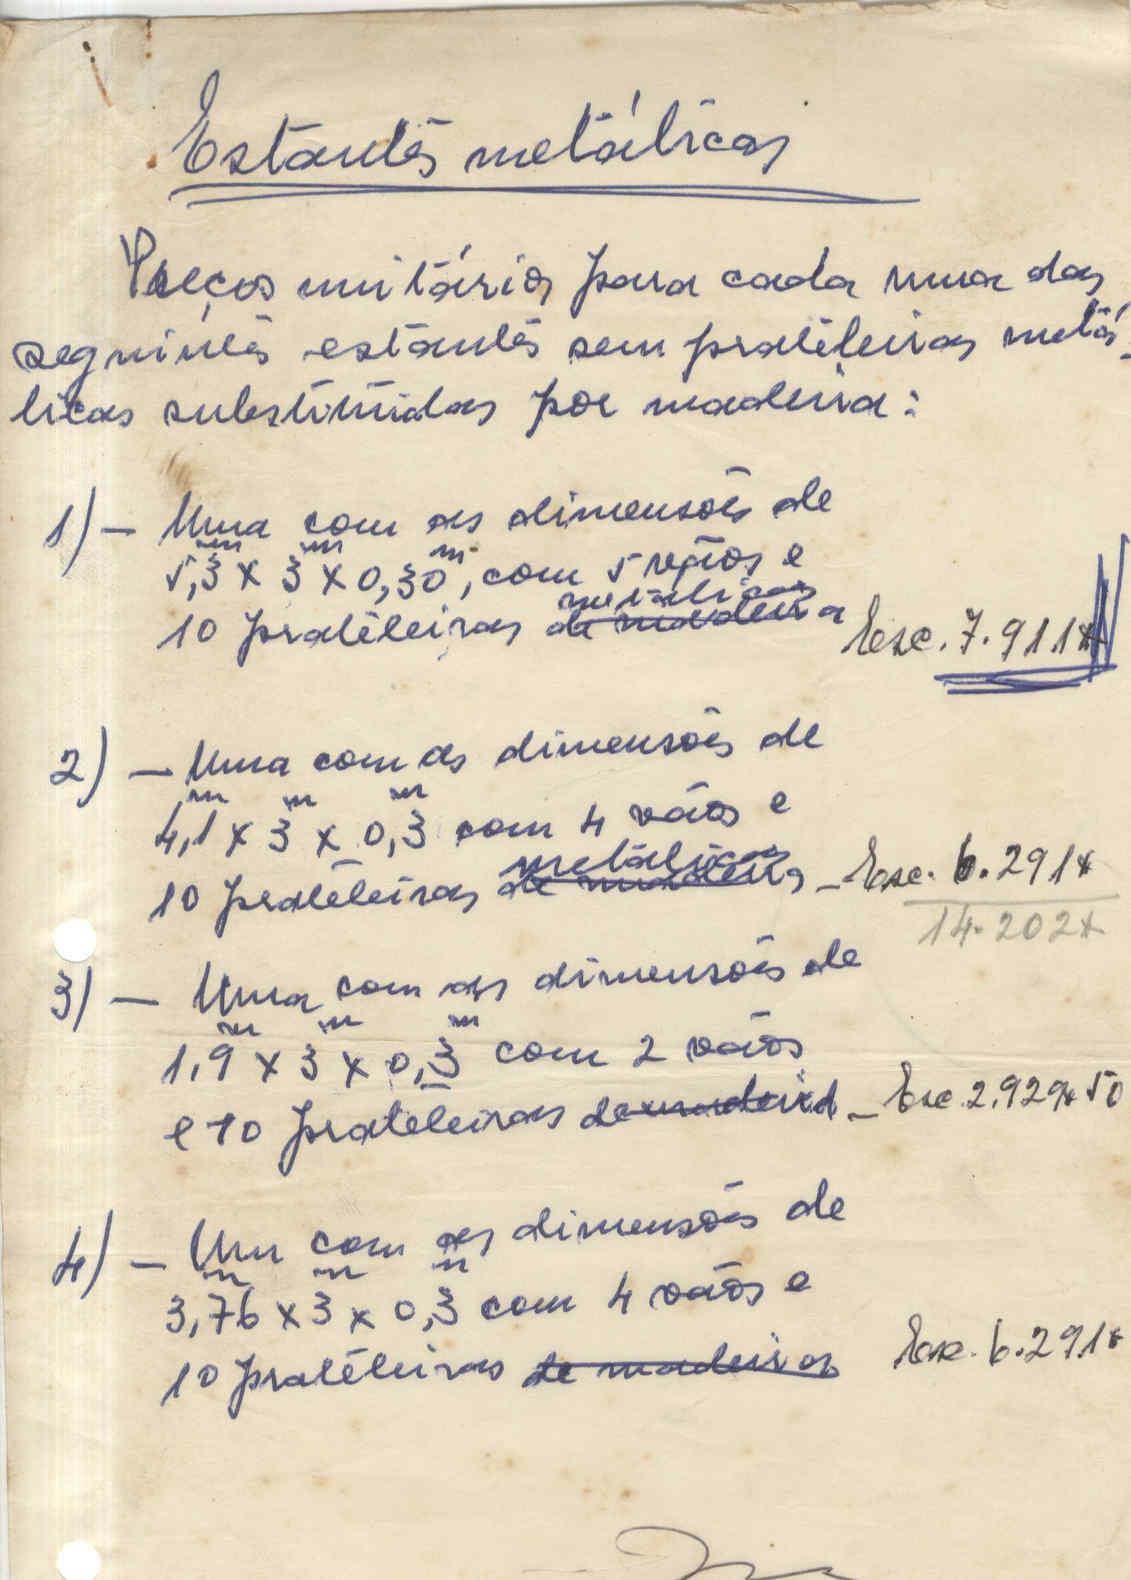 Estantes metálicas
Preços unitários para cada uma das
seguintes estantes sem prateleiras metá-
licas substituidas por madeira:
1) - Uma com as dimensões de
5,3m x 3m x 0,30m, com 5 vãos e
metálicas
10 prateleiras de madeira Esc. 7.911$
2) - Uma com as dimensões de
4,1m x 3m x 0,3m com 4 vãos e
metálicas
10 prateleiras de madeira - Esc. 6.291$
14.202$
3) - Uma com as dimensões de
1,9m x 3m x 0,3m com 2 vãos
e 10 prateleiras de madeira - Esc. 2.929$50
4) - Um com as dimensões de
3,76m x 3m x 0,3m com 4 vãos e
10 prateleiras de madeira Esc. 6.291$